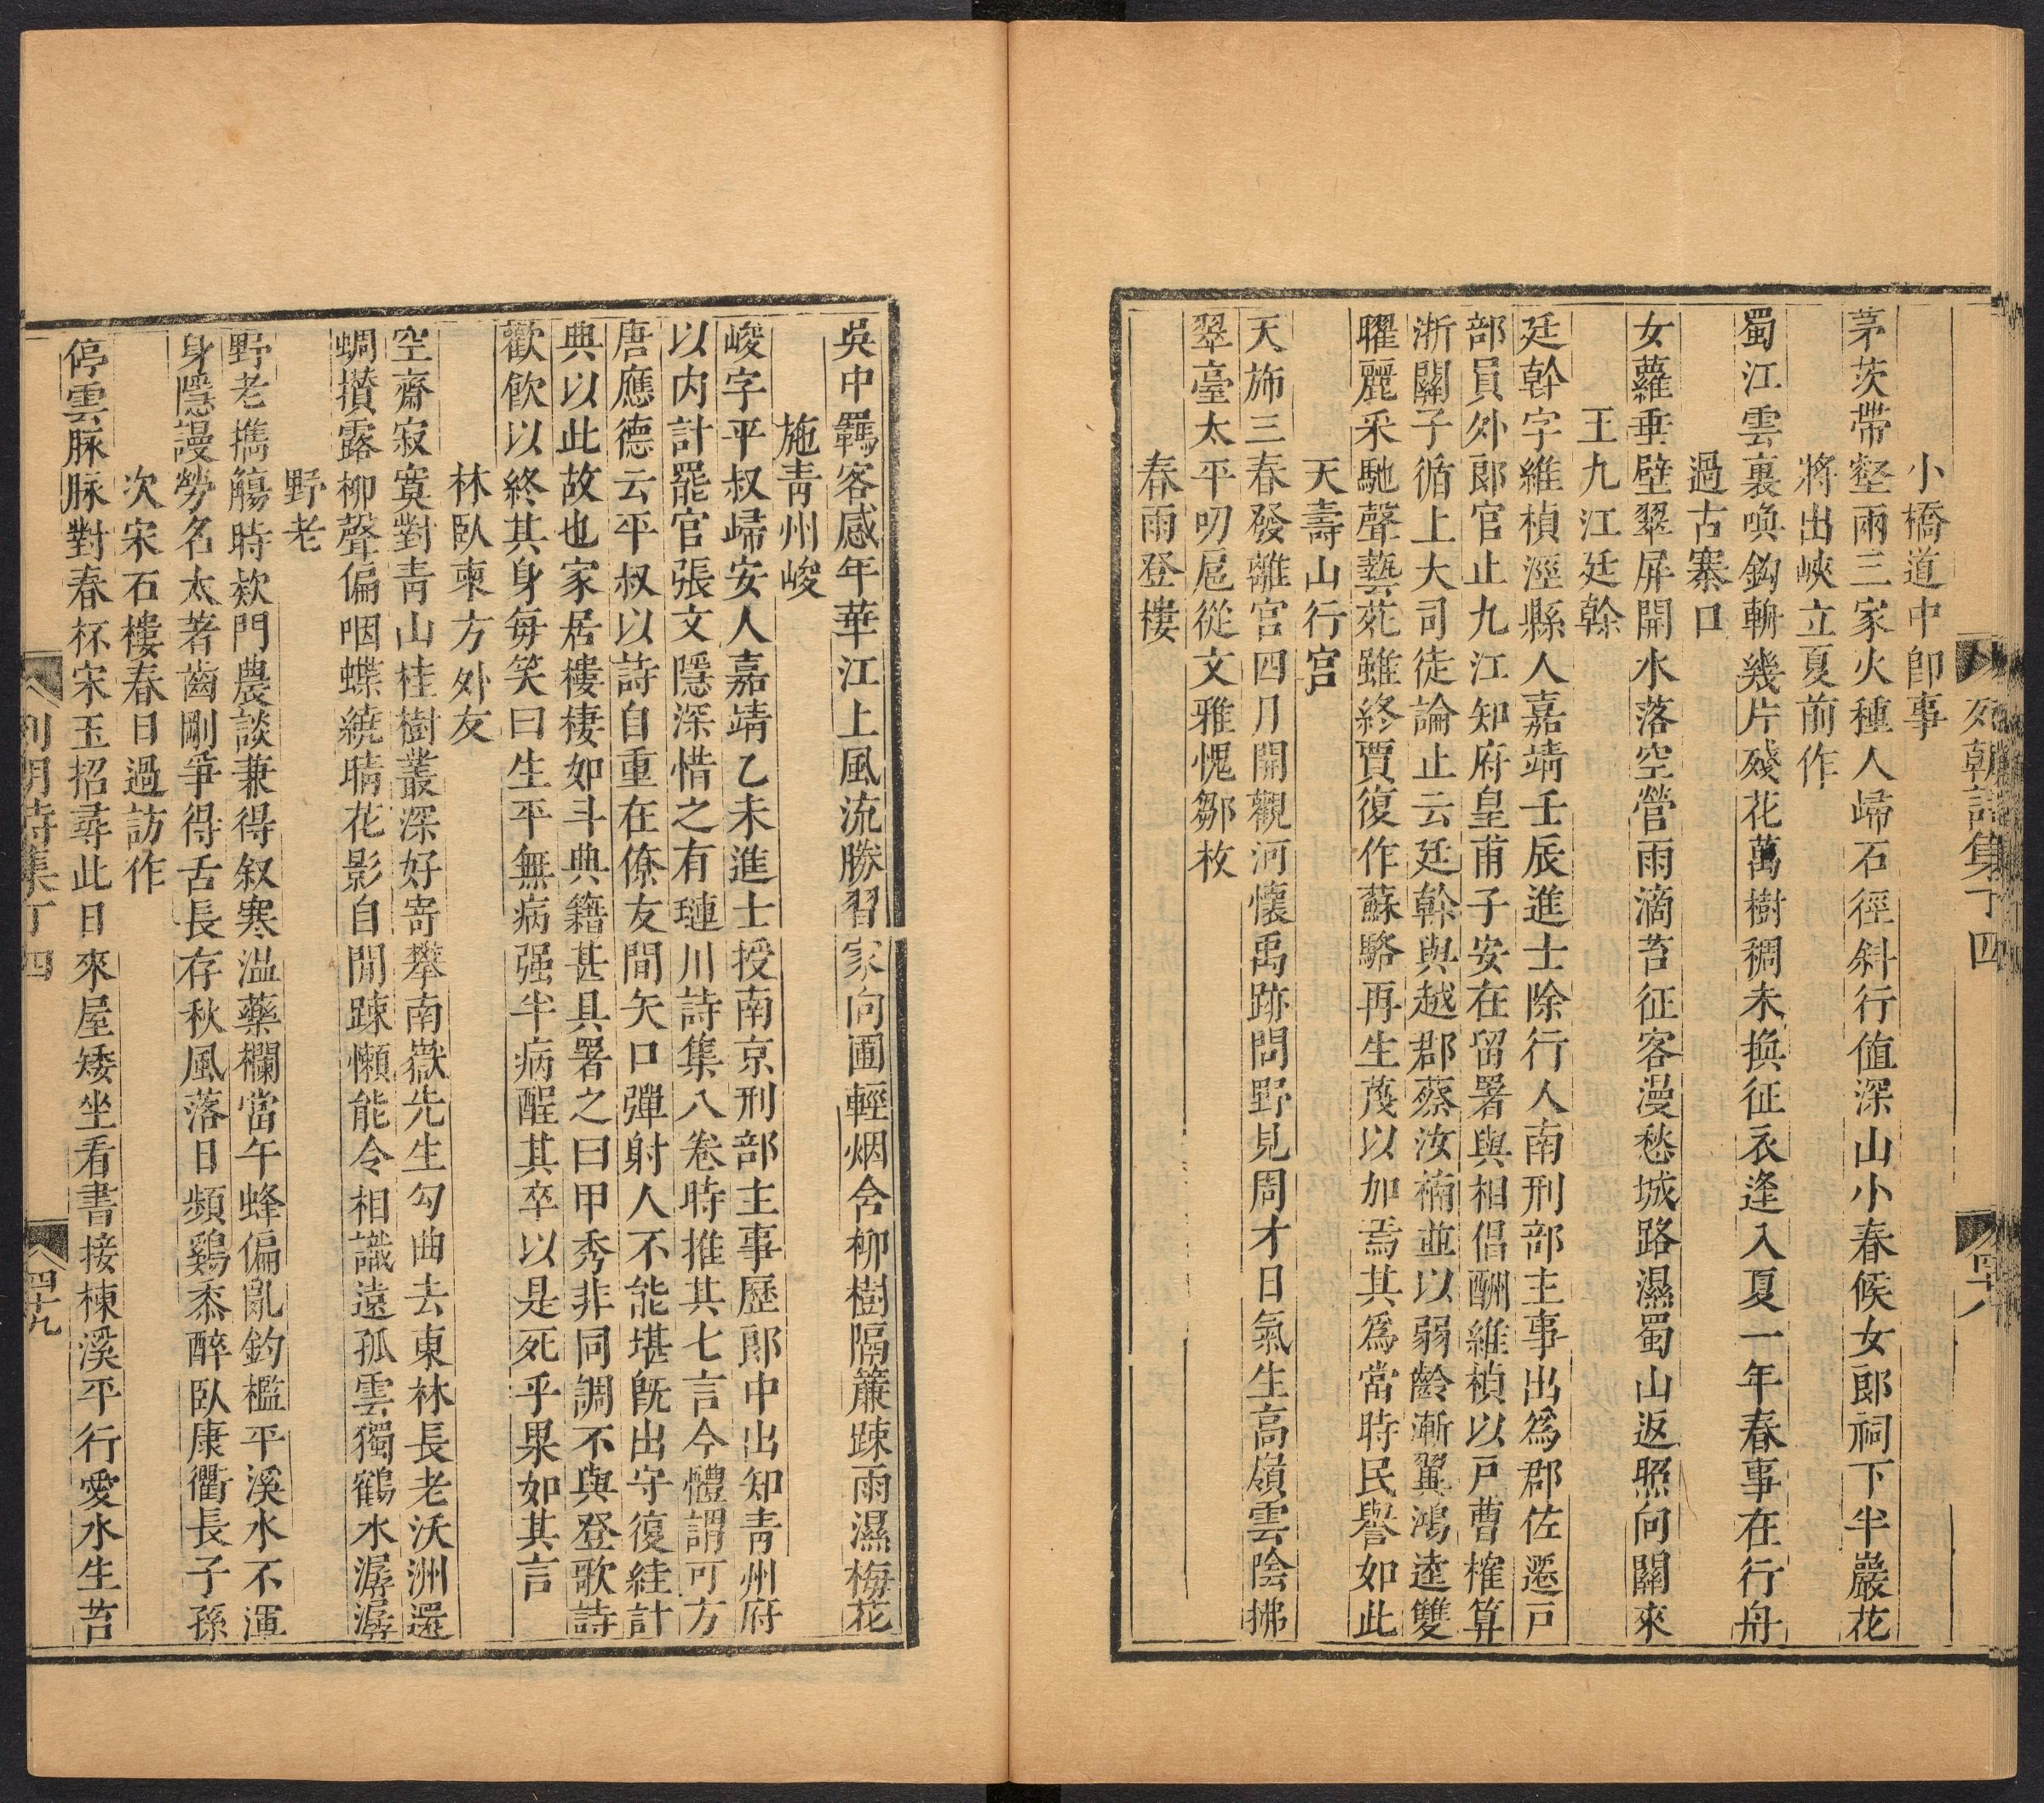 列朝詩集丁四
四十八
小橋道中即事
茅茨帶壑兩三家火種人歸石徑斜行值深山小春候女郎祠下半巖花
將出峽立夏前作
蜀江雲裏喚鈎輈幾片殘花萬樹稠未換征衣逢入夏一年春事在行舟
過古寨口
女蘿垂壁翠屏開水落空營雨滴苔征客漫愁城路濕蜀山返照向關來
王九江廷榦
廷幹字維楨涇縣人嘉靖壬辰進士除行人南刑部主事出爲郡佐遷戸
部員外郎官止九江知府皇甫子安在留署與相倡酬維楨以戸曹榷算
浙關子循上大司徒論止云廷幹與越郡蔡汝楠並以弱齡漸翼鴻逵雙
曜麗采馳聲藝苑雖終賈復作蘇駱再生蔑以加焉其爲當時民譽如此
天壽山行宮
天斾三春發離宮四月開觀河懷禹跡問野見周才日氣生高嶺雲陰拂
翠臺太平叨扈從文雅愧鄒枚
春雨登樓
吳中羈客感年華江上風流勝習家向圃輕烟含柳樹隔簾踈雨濕梅花
施青州峻
峻字平叔歸安人嘉靖乙未進士授南京刑部主事歷郎中出知青州府
以内計罷官張文隱深惜之有璉川詩集八卷時推其七言今體謂可方
唐應德云平叔以詩自重在僚友間矢口彈射人不能堪旣出守復絓計
典以此故也家居樓棲如斗典籍甚具署之曰甲秀非同調不與登歌詩
歡飲以終其身每笑曰生平無病强半病酲其卒以是死乎果如其言
林臥柬方外友
空齋寂寞對青山桂樹叢深好寄攀南嶽先生勾曲去東林長老沃洲還
蜩攢露柳聲偏咽蝶繞晴花影自閒踈懶能令相識遠孤雲獨鶴水潺潺
野老
野老擕觴時欵門農談兼得叙寒溫藥欄當午蜂偏亂釣檻平溪水不渾
身隱謾勞名太著齒剛爭得舌長存秋風落日頻鷄黍醉臥康衢長子孫
次宋石樓春日過訪作
停雲脉脉對春杯宋玉招尋此日來屋矮坐看書接棟溪平行愛水生苔
列朝詩集丁四
四十九